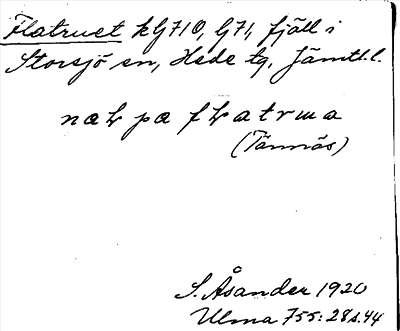 Flatruet kG710, G71, fjäll i
Storsjö sn, Hede tg. Jämtl. l.
(Tännäs)
S. Åsander 1920
Ulma 755: 28 s. 44